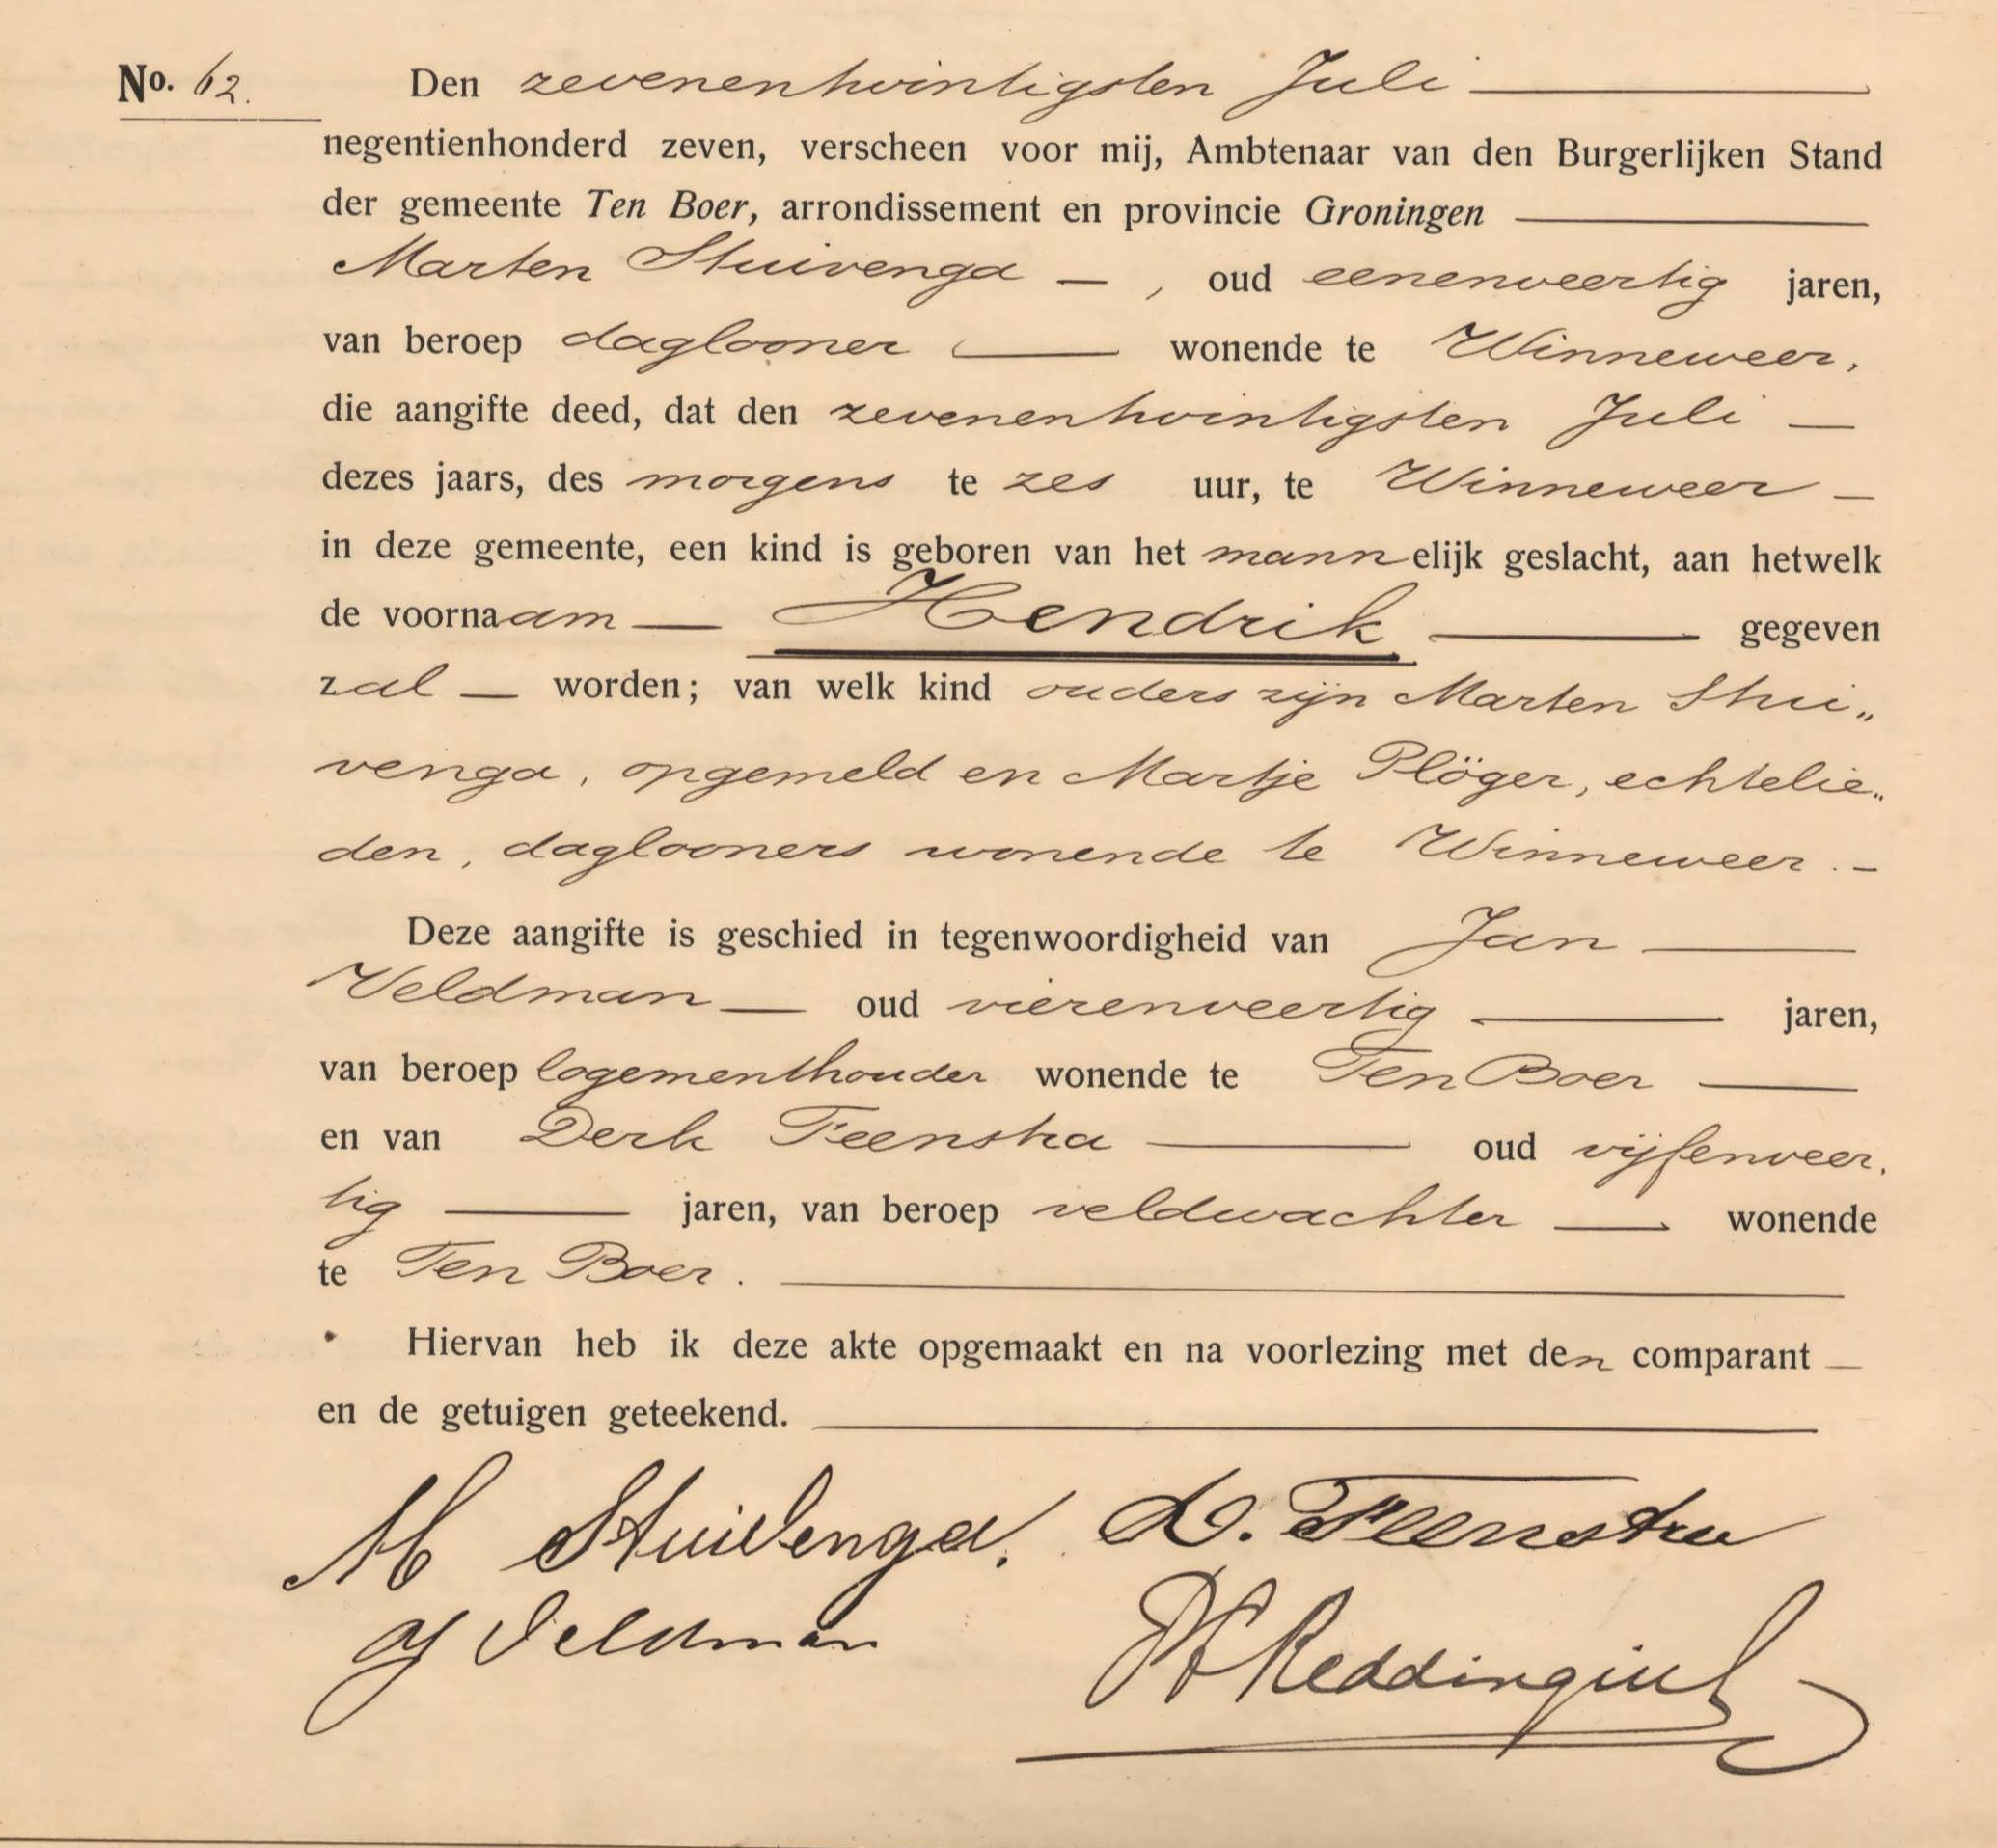 No. 62. Den zevenentwintigsten Juli
negentienhonderd zeven, verscheen voor mij, Ambtenaar van den Burgerlijken Stand
der gemeente Ten Boer, arrondissement en provincie Groningen
Marten Stuivenga — , oud eenenveertig jaren,
van beroep daglooner — wonende te Winneweer,
die aangifte deed, dat den zevenentwintigsten Juli —
dezes jaars, des morgens te zes uur, te Winneweer —
in deze gemeente, een kind is geboren van het mannelijk geslacht, aan hetwelk
de voornaam — Hendrik — gegeven
zal — worden; van welk kind ouders zijn Marten Stui„
venga, opgemeld en Martje Plöger, echtelie„
den, daglooners wonende te Winneweer. —
Deze aangifte is geschied in tegenwoordigheid van Jan —
Veldman — oud vierenveertig — jaren,
van beroep logementhouder wonende te Ten Boer —
en van Derk Feenstra — oud vijfenveer„
tig — jaren, van beroep veldwachter — wonende
te Ten Boer. —
Hiervan heb ik deze akte opgemaakt en na voorlezing met den comparant —
en de getuigen geteekend. —
M Stuivenga. D. Feenstra
J Veldman Reddingius